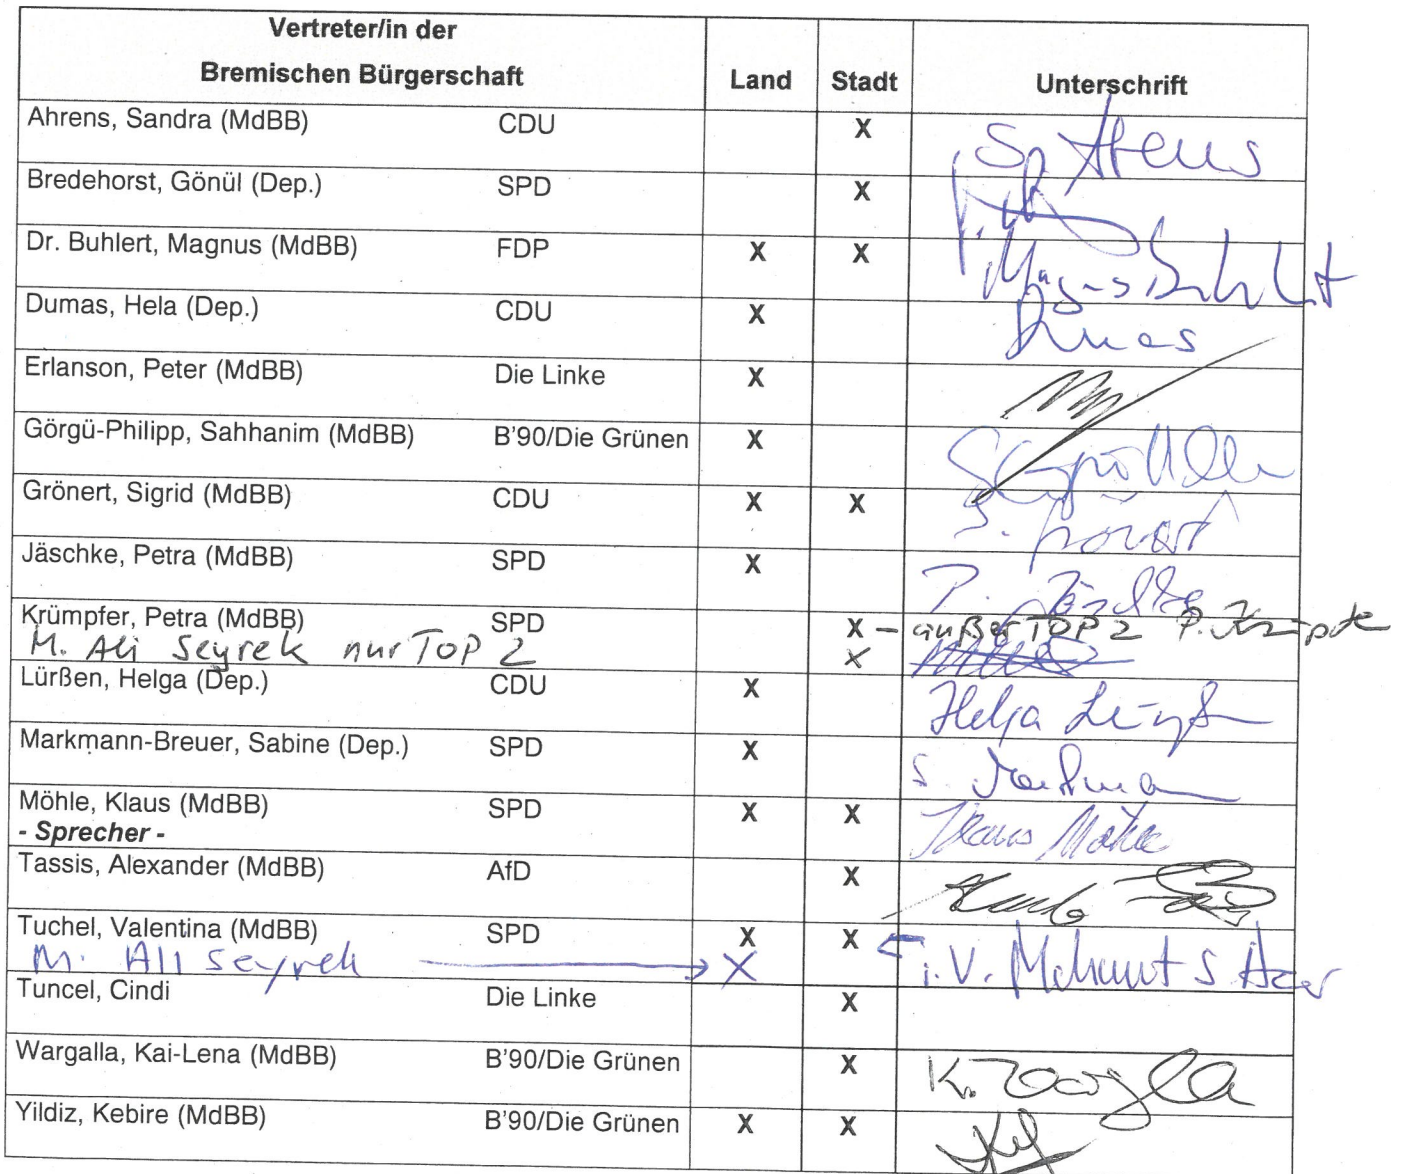 Vertreter/in der
Bremischen Bürgerschaft Land Stadt Unterschrift
Ahrens, Sandra (MdBB) CDU X S. Ahrens
Bredehorst, Gönül (Dep.) SPD X
Dr. Buhlert, Magnus (MdBB) FDP X X Magnus Buhlert
Dumas, Hela (Dep.) CDU X Dumas
Erlanson, Peter (MdBB) Die Linke X
Görgü-Philipp, Sahhanim (MdBB) B'90/Die Grünen X
Grönert, Sigrid (MdBB) CDU X X S. Grönert
Jäschke, Petra (MdBB) SPD X P. Jäschke
Krümpfer, Petra (MdBB) SPD X – außer TOP 2 P. Krümpfer
M. Ali Seyrek nur TOP 2 X
Lürßen, Helga (Dep.) CDU X Helga Lürßen
Markmann-Breuer, Sabine (Dep.) SPD X S. Markmann
Möhle, Klaus (MdBB) SPD X X Klaus Möhle
- Sprecher -
Tassis, Alexander (MdBB) AfD X
Tuchel, Valentina (MdBB) SPD X X
M. Ali Seyrek X i.V. Mehmet S Acar
Tuncel, Cindi Die Linke X
Wargalla, Kai-Lena (MdBB) B'90/Die Grünen X K. Wargalla
Yildiz, Kebire (MdBB) B'90/Die Grünen X X